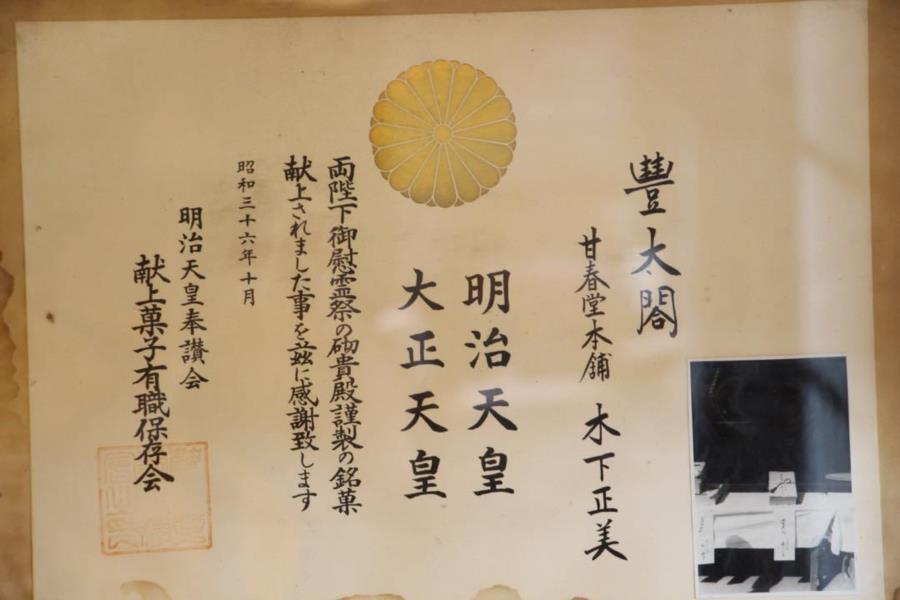 豐太閤
甘春堂本舖 木下正美
明治天皇
大正天皇
両陛下御慰霊祭の砌貴殿謹製の銘菓
献上されました事を茲に感謝致します
昭和三十六年十月
明治天皇奉讃会
献上菓子有職保存会